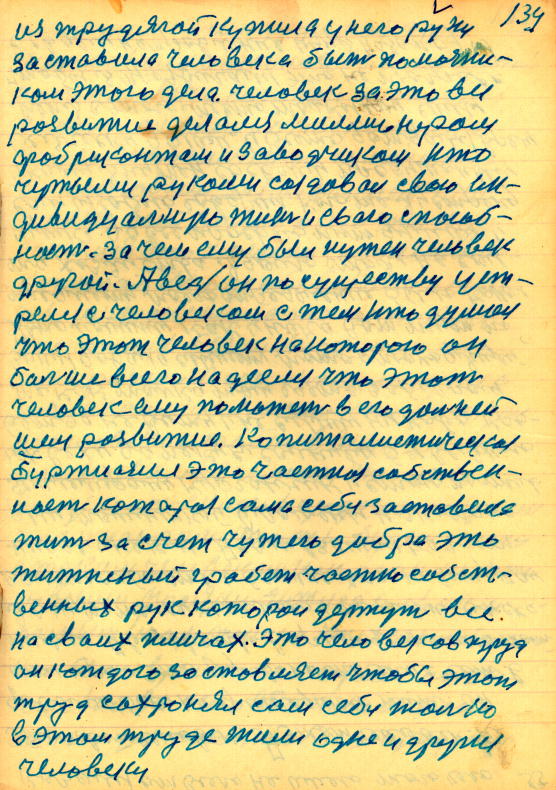 139
из трудягой купила у него руки
заставила человека быть помощни-
ком этого дела. человек за это все
развитие делался миллионером
фабрикантам и заводчиком кто
чужыми руками создавал свою ин-
дивидуалную жизнь и свою способ-
ност. Зачем ему был нужен человек
другой. А вед он по существу уст-
релся с человеком с тем кто думал
что этот человек на которого он
болше всего надеелся что этот
человек ему поможет в его далней
шем развитие. Капиталистическая
буржиазия это частная собствен-
ност которая сама себя заставила
жит за счет чужего добра это
жизненый грабеж частно собст-
венных рук которои держут все
на своих пличах. Это человеков труд
он каждого заставляет чтобы этот
труд сохронял сам себя толко
в этом труде жили одне и другия
человеки